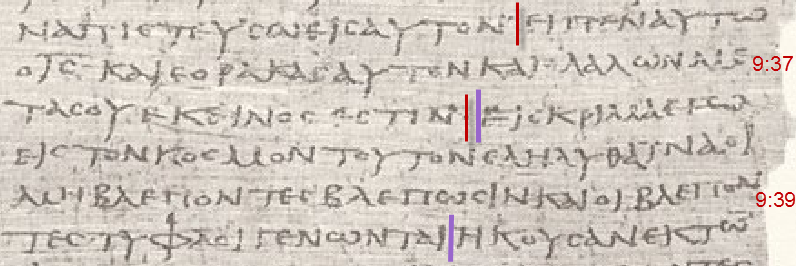 ΝΑΠΙCΤΕΥCΩΕΙCΑΥΤΟΝ ΕΙΠΕΝΑΥΤΩ
ΟΙC ΚΑΙΕΟΡΑΚΑCΑΥΤΟΝΚΑΙΟΛΑΛΩΝΜΕ 9:37
ΤΑCΟΥΕΚΕΙΝΟCΕCΤΙΝ ΕΙCΚΡΙΜΑΕΓΩ
ΕΙCΤΟΝΚΟCΜΟΝΤΟΥΤΟΝΕΛΗΛΥΘΑΙΝΑΟΙ
ΜΗΒΛΕΠΟΝΤΕCΒΛΕΠΩCΙΝΚΑΙΟΙΒΛΕΠΟΝ 9:39
ΤΕCΤΥΦΛΟΙΓΕΝΩΝΤΑΙ ΗΚΟΥCΑΝΕΚΤΩ